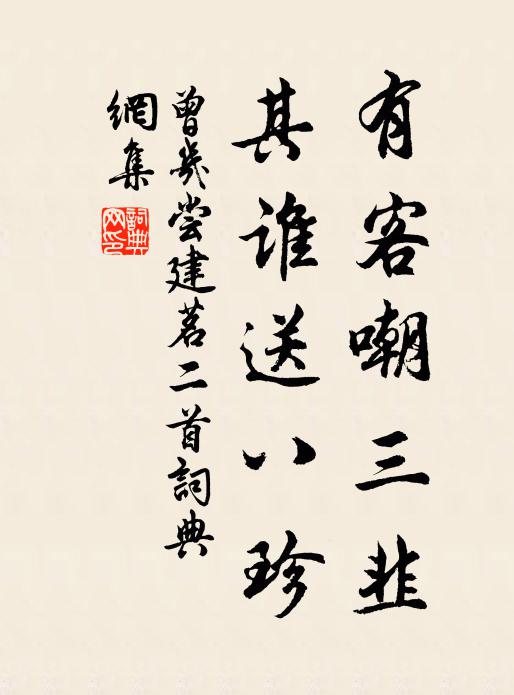 有客嘲三韭
其誰送八珍
曾幾嘗建茗二首詞典
網集
詞典网印